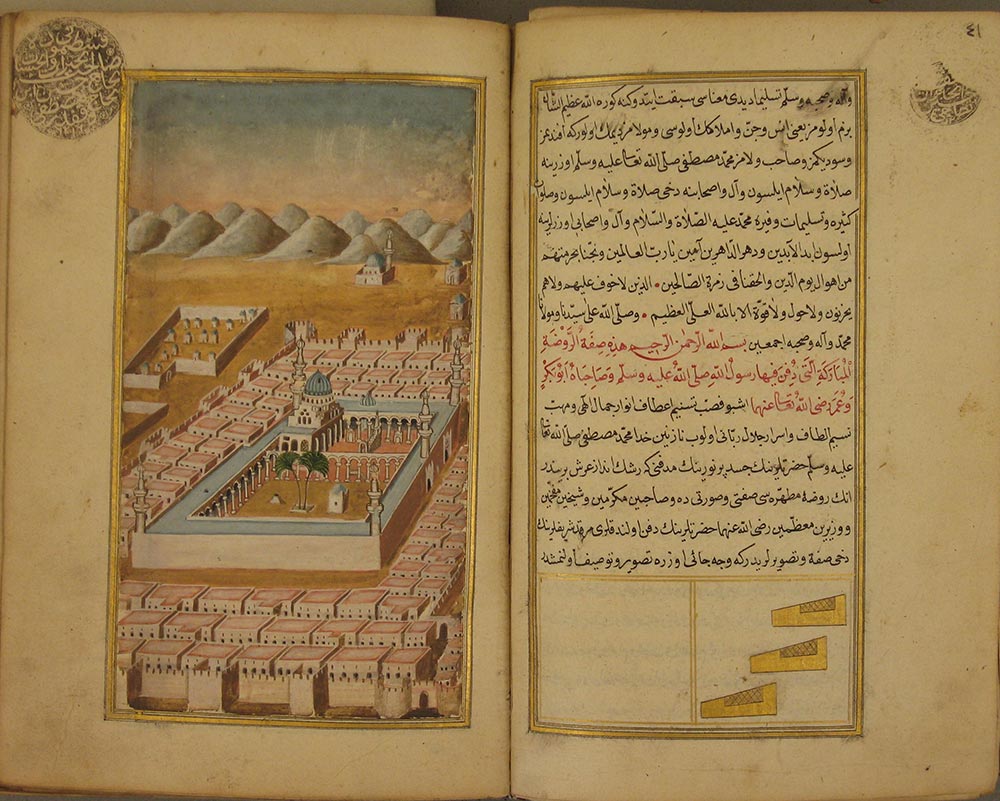 ٤١
وآله وصحبه وسلم تسليما ديدى معناسى سبقت ايتدوكنه كوره الله عظيم الشان
بزم اولومز يعنى انس وجن واملاكك اولوسى ومولامز ديمك اولوركه افندمز
وسوديكمز وصاحب ولامز محمد مصطفى صلى الله تعالى عليه وسلم اوزرينه
صلاة وسلام ايلسون وآل واصحابنه دخى صلاة وسلام ايلسون وصلوات
كثيره وتسليمات وفيره محمد عليه الصلاة والسلام وآل واصحابى اوزرلرينه
اولسون ابد الآبدين ودهر الداهرين آمين يا رب العالمين ونجنا بحرمتهم
من اهوال يوم الدين والحقنا فى زمرة الصالحين الذين لا خوف عليهم ولا هم
يحزنون ولا حول ولا قوة الا بالله العلى العظيم وصلى الله على سيدنا ومولانا
محمد وآله وصحبه اجمعين بسم الله الرحمن الرحيم هذه صفة الروضة
المباركة التى دفن فيها رسول الله صلى الله عليه وسلم وصاحباه ابو بكر
وعمر رضى الله تعالى عنهما اشبو قصب تسنيم اعطاف انوار جمال الهى ومهب
نسيم الطاف واسرار جلال ربانى اولوب نازنين خدا محمد مصطفى صلى الله تعالى
عليه وسلم حضرتلرينك جسد پر نورينك مدفنى كه رشك انداز عرش بريندر
انك روضهٔ مطهره سى صفتى وصورتى ده وصاحبين مكرمين وشيخين مفخمين
ووزيرين معظمين رضى الله عنهما حضرتلرينك دفن اولندقلرى مرقد شريفلرينك
دخى صفة وتصويرلريدركه وجه جائى اوزره تصوير وتوصيف اولنمشدر